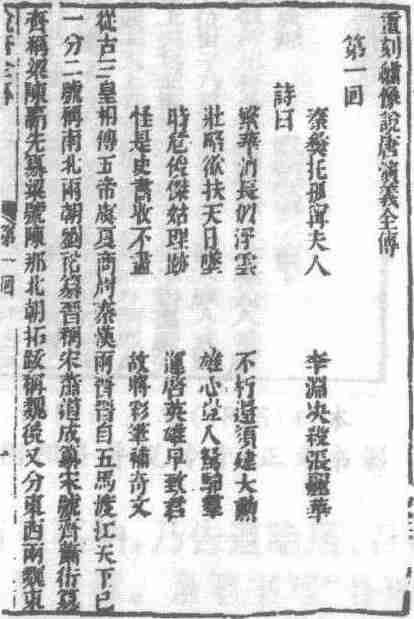 重刻繡像說唐演義全傳
第一回
秦彝托孤寧夫人 李淵決殺張麗華
詩曰
繁華消長似浮雲 不朽還須建大勲
壯略欲扶天日墜 雄心豈入駑駘羣
時危俊傑姑埋跡 運啓英雄早致君
怪是史書收不盡 故將彩筆補奇文
從古三皇相傳五帝歷夏商周秦漢兩晉晉自五馬渡江天下已
一分二號稱南北兩朝劉裕篡晋稱宋蕭道成篡宋號齊蕭衍篡
齊稱梁陳霸先篡梁號陳那北朝拓跋稱魏後又分東西兩魏東
第一回